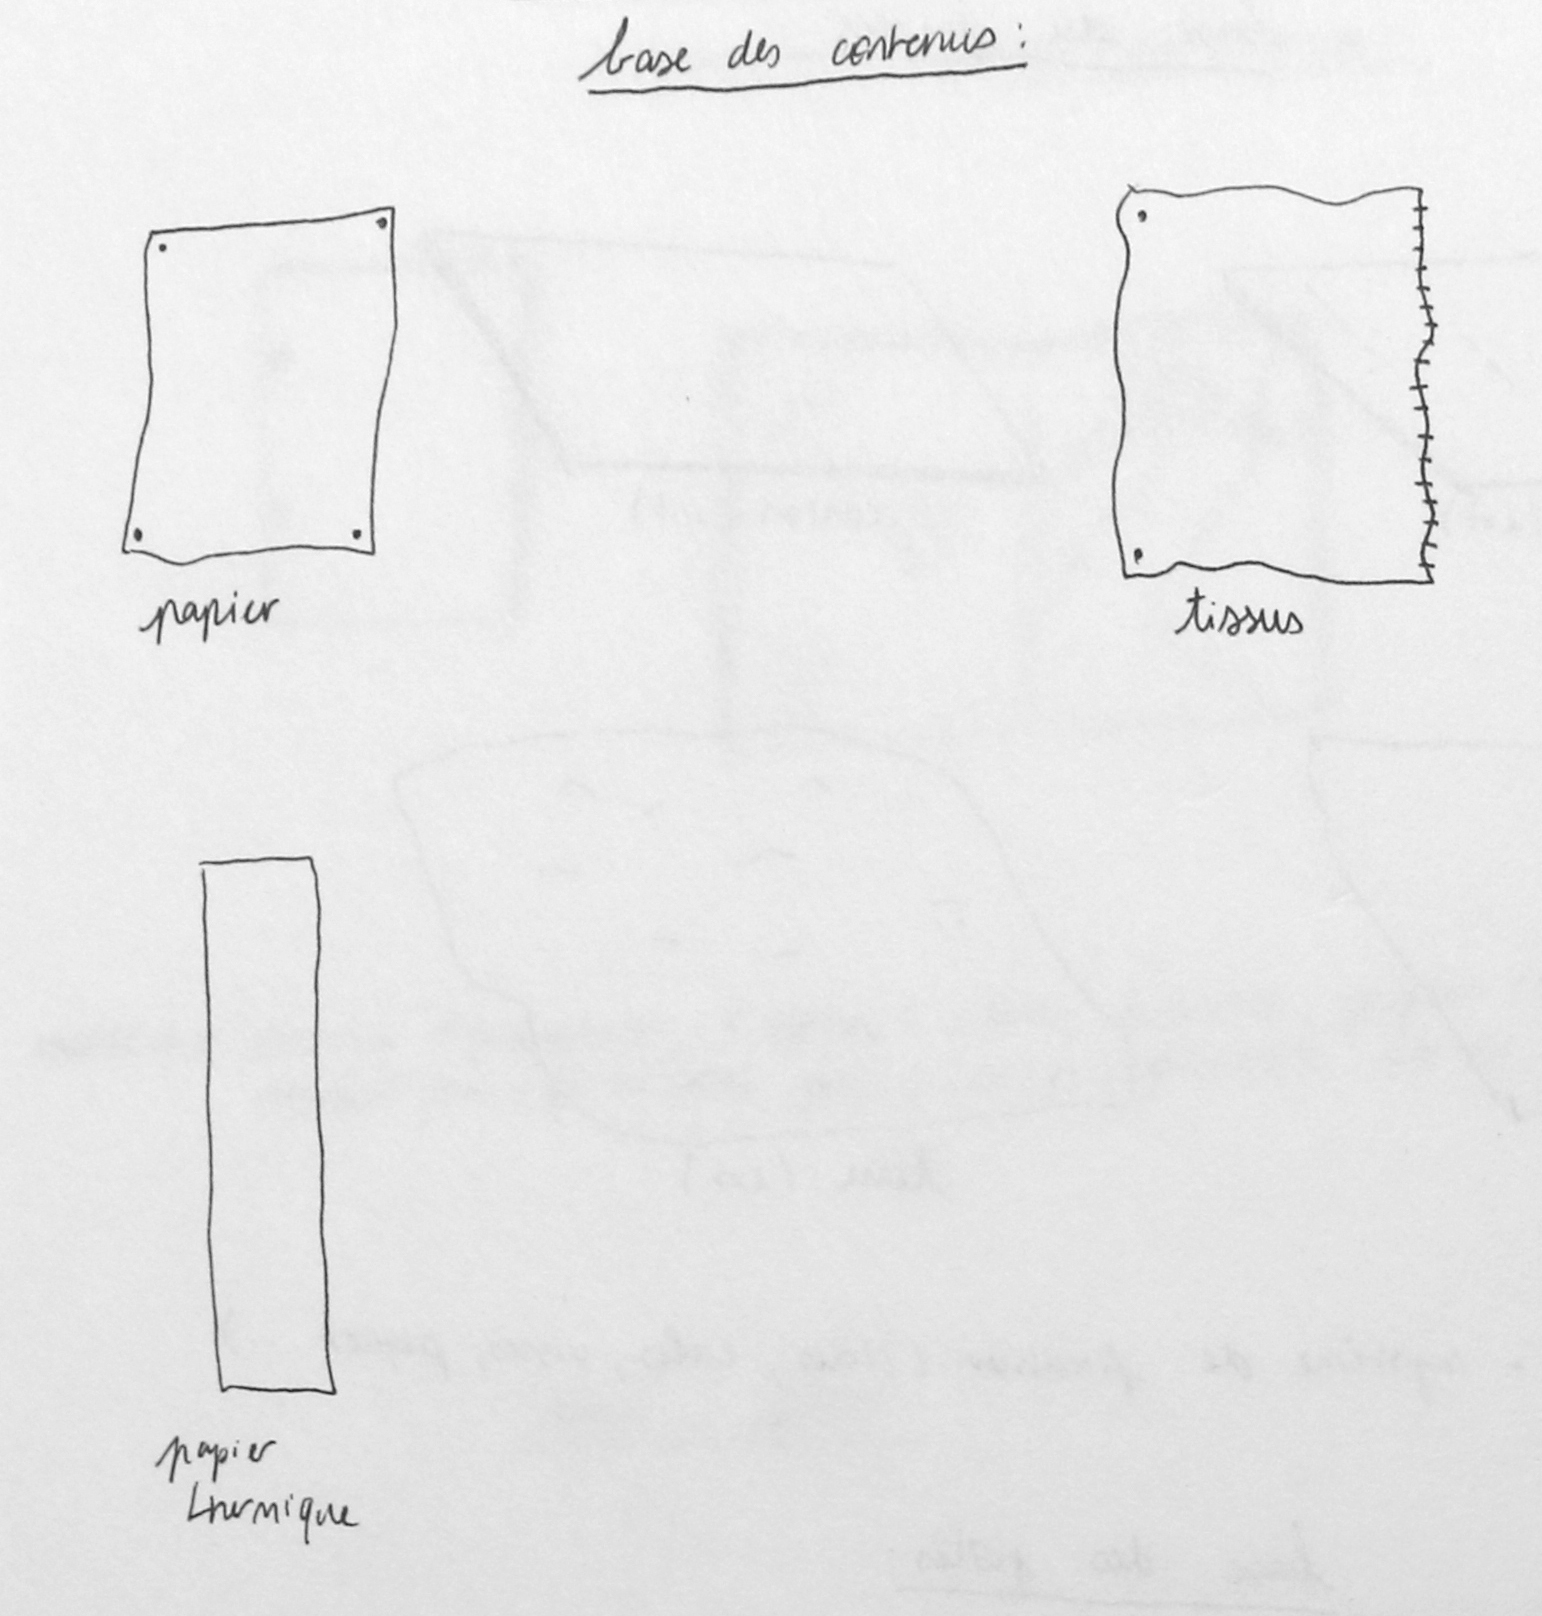 base des contenus :
papier
tissus
papier
thermique